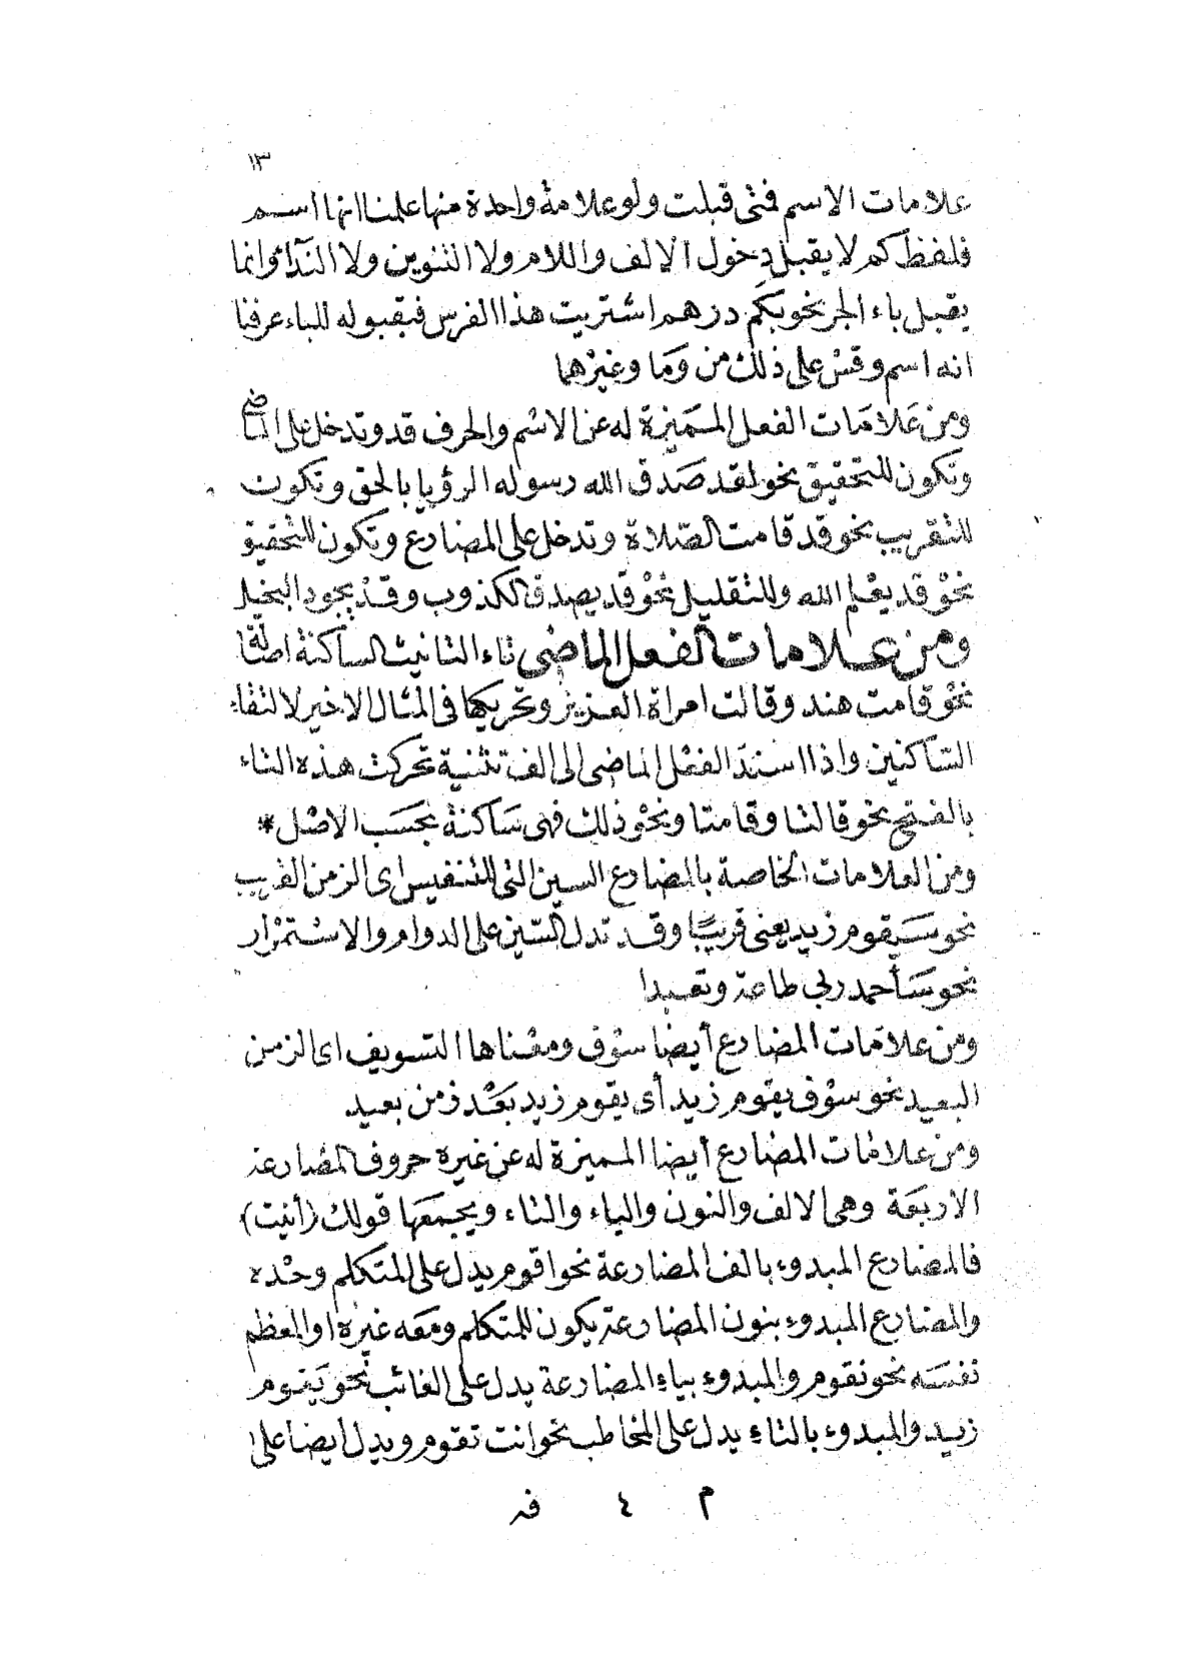 ١٣
علامات الاسم فمتى قبلت ولو علامة واحدة منها علمنا انها اسم
فلفظ كم لا يقبل دخول الالف واللام ولا التنوين ولا الندآء وانما
يقبل باء الجر نحو بكَم درهم اشتريت هذا الفرس فبقبوله للباء عرفنا
انه اسم وقسْ على ذلك من وَما وغيرْهما
ومن عَلامَات الفعل المـَميزة له عن الاسْم والحرف قد وتدخل على الماضى
وتكون للتحقيق نحو لقد صَدق الله رسوله الرؤيا بالحق وتكون
للتقريب نحو قد قامت الصّلاة وتدخل على المضارع وتكون للتحقيق
نحوْ قد يعْلم الله وللتقليل نحوْ قد يصدق الكذوب وقدْ يجود البخيل
ومن علامات الفعل الماضى تاء التانيث الساكنة اصَالة
نحوْ قامت هند وقالت امراة العزيز وتحريكها فى المثال الاخير لالتقاء
السّاكنين واذا اسندَ الفعْل الماضى الى الف تثنية تحركت هذه التاء
بالفتح نحو قالتا وقامتا ونحوْ ذلك فهى سَاكنة بحسَب الاصْل *
ومن العلامات الخاصة بالمضارع السين التى للتنفيس اى الزمن القريب
نحو سَيقوم زيد يعنى قريبًا وقد تدل السّين على الدوام والاسْتمْرار
نحو سَأحمد ربى طاعة وتعبدا
ومن علامَات المضارع أيضا سوْف ومعْناها التسويف اى الزمن
البعيد نحو سوْف يقوم زيد أى يقوم زيد بَعْد زمن بعيد
ومن علامَات المضارع أيضا المميزة له عن غيره حروف المضارعة
الاربَعة وهى الالف والنون والياء والتاء ويجمَعها قولك (أنيت)
فالمضارع المبدوء بالف المضارعة نحو اقوم يدل على المتكلم وحْده
والمضارع المبدوء بنون المضارعة يكون للمتكلم ومَعه غيرْه او المعظم
نفسَه نحو نقوم والمبدوء بياء المضارعة يدل على الغائب نحو يَقوم
زيد والمبدوء بالتاء يدل على المخاطب نحو انت تقوم ويدل ايضا على
م ٤ فه